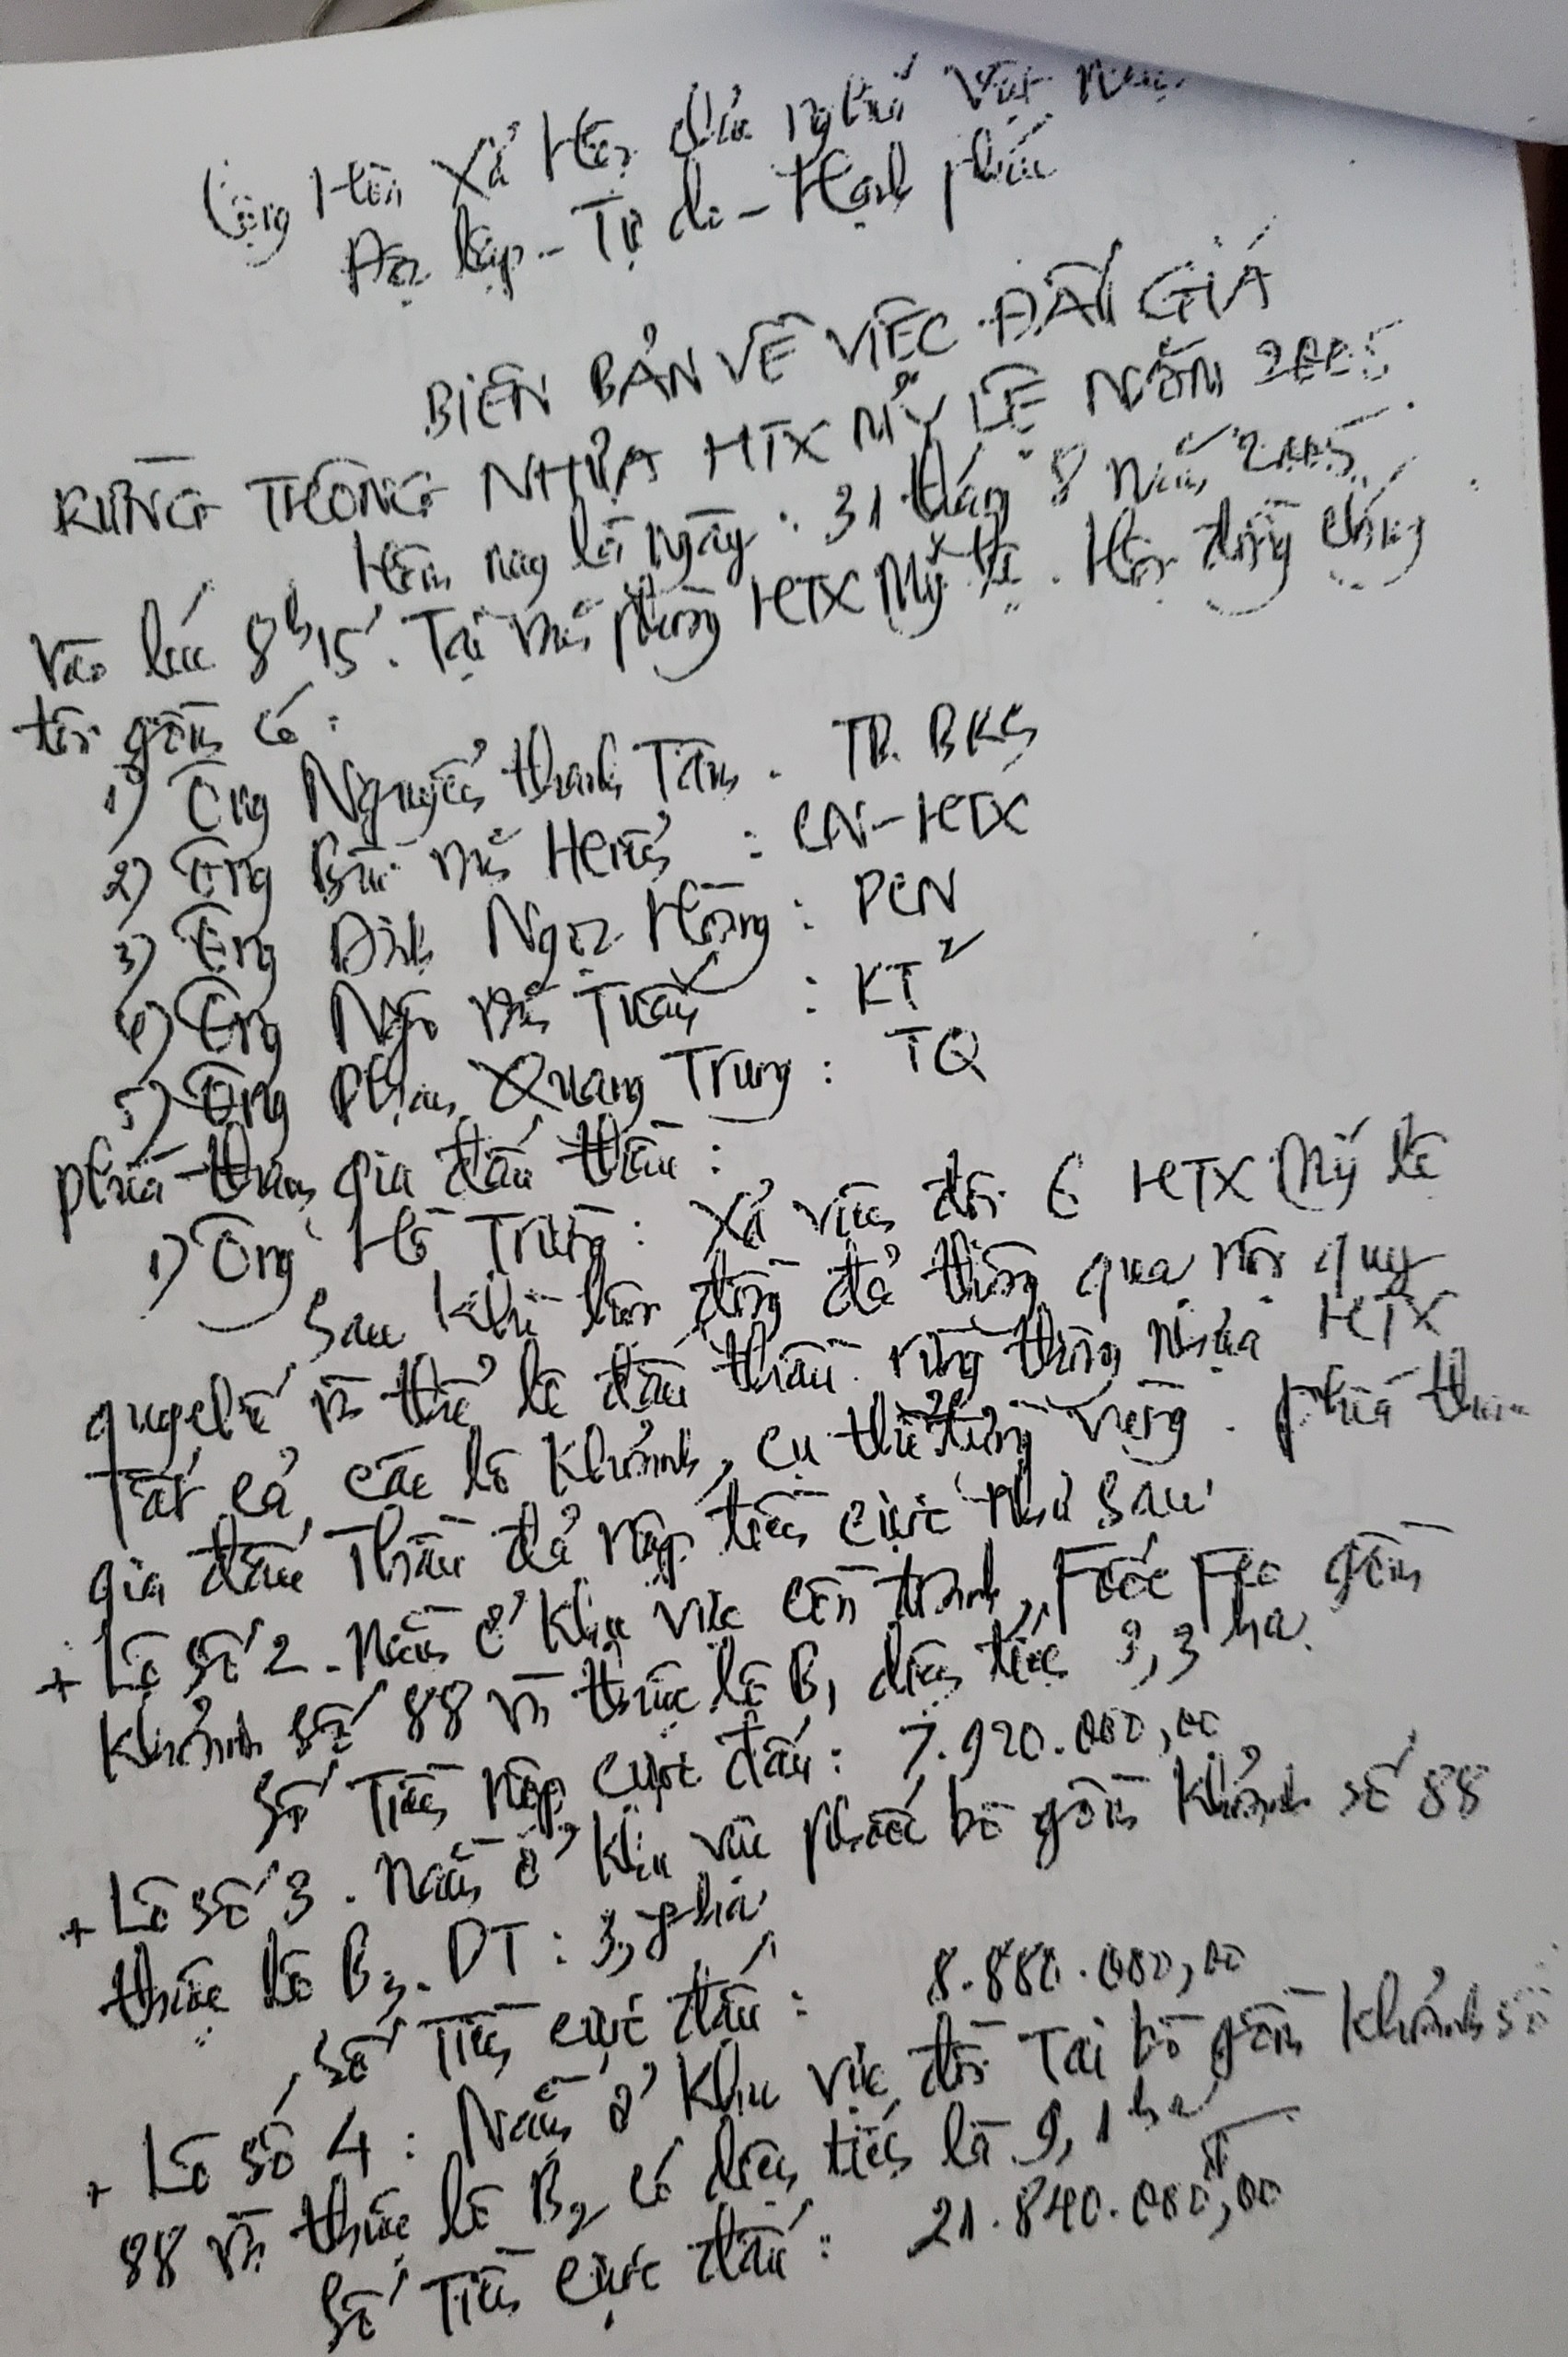 Cộng Hòa Xả Hội chủ nghĩa Việt Nam
Độc lập - Tự do - Hạnh phúc
BIÊN BẢN VỀ VIỆC ĐẤU GIÁ
RỪNG THÔNG NHỰA HTX MỸ LỆ NĂM 2005
Hôm nay là ngày: 31 tháng 8 năm 2005.
Vào lúc 8h15'. Tại văn phòng HTX Mỹ lệ. Hội đồng chúng
tôi gồm có:
1) Ông Nguyễn thanh Tâm. TB. BKS
2) Ông Bùi văn Hiếu : CN-HTX
3) Ông Đinh Ngọc Hồng : PCN
4) Ông Ngô văn Tuấn : KT
5) Ông Phạm Quang Trung : TQ
phía tham gia đấu thầu :
1) Ông Hồ Trung : Xả viên đội 6 HTX Mỹ lệ
Sau khi hội đồng đả thông qua nội quy
quy chế và thể lệ đấu thầu rừng thông nhựa HTX
Tất cả các lô khoảnh, cụ thể từng vùng. phía tham
gia đấu Thầu đả nộp tiền cược như sau
+ Lô số 2. Nằm ở khu vực gồm
khoảnh số 88 và thuộc lô B1 diện tích 3,3 ha.
Số Tiền nộp cược đấu : 7.920.000,00
+ Lô số 3. Nằm ở khu vực gồm khoảnh số 88
thuộc lô B3. DT : 3, ha
Số Tiền cược đấu : 8.880.000,00
+ Lô số 4 : Nằm ở khu vực gồm khoảnh số
88 và thuộc lô B2 có diện tích là 9,1 ha
Số Tiền cược đấu : 21.840.000,00